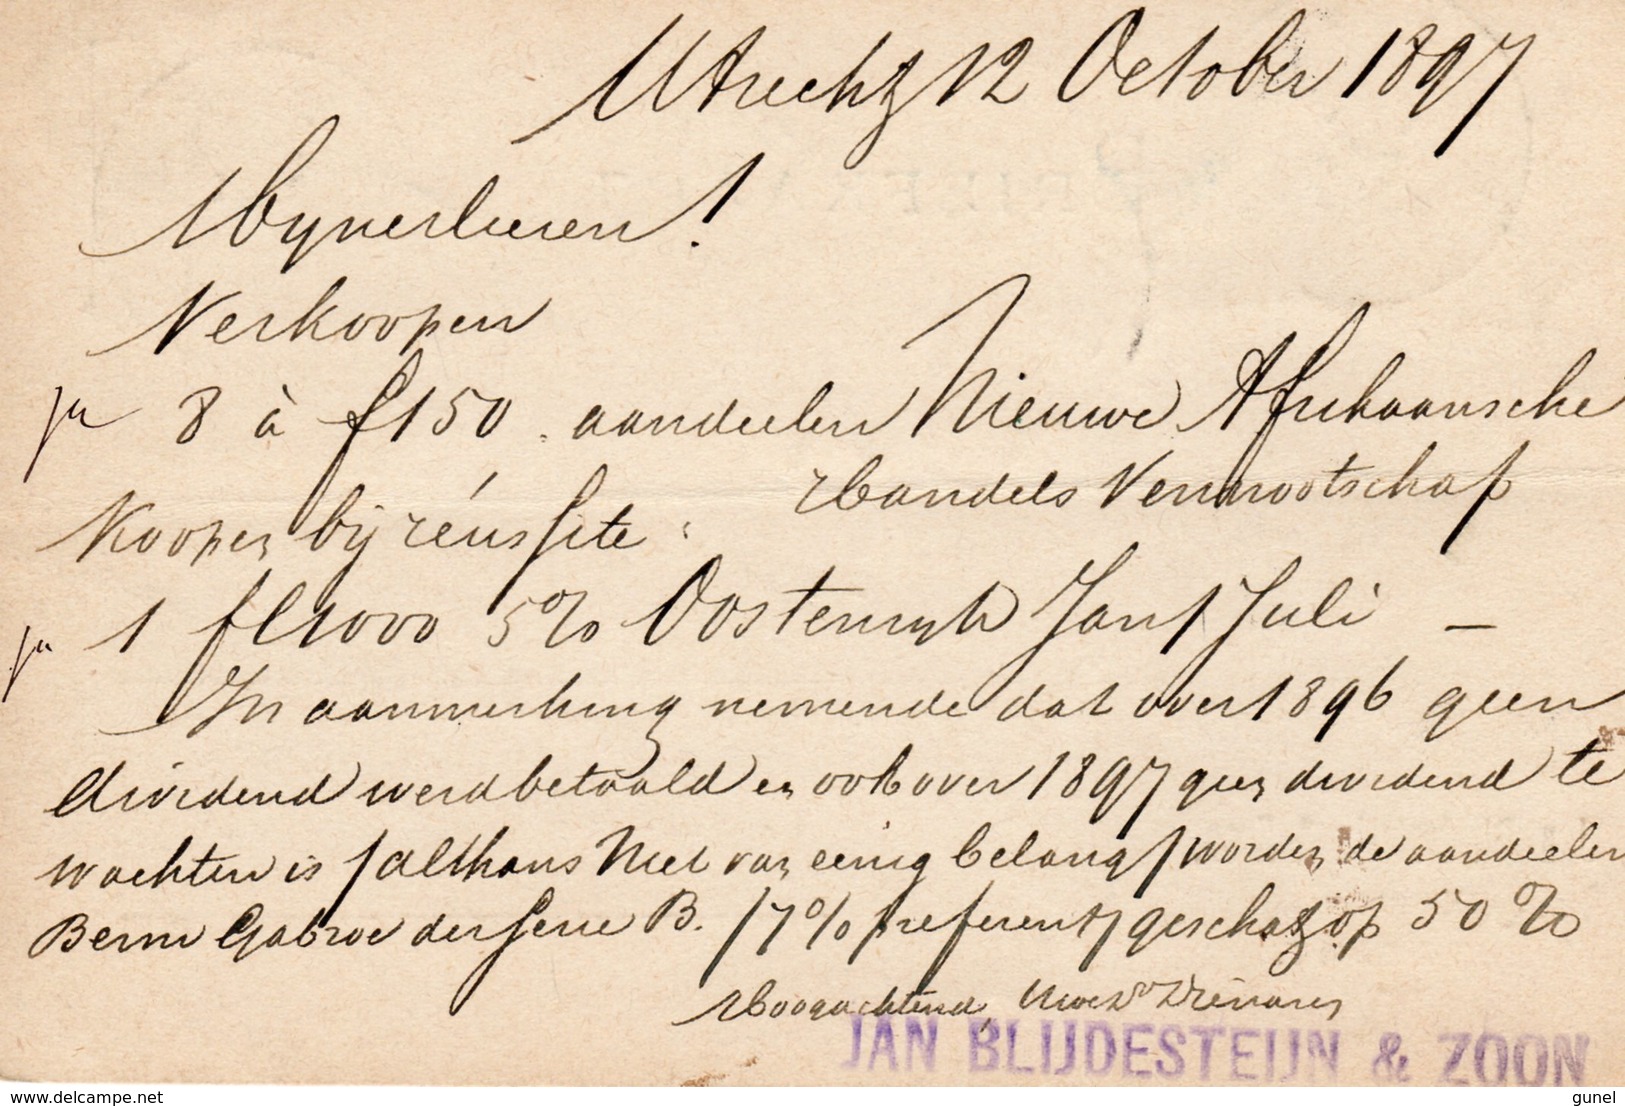 Utrecht 12 October 1897
Mynerheeren!
Verkoopen
8 à f 150 aandeelen Nieuwe Afrikaansche
Handels Vennootschap
Koopen bij réussite:
1 fl 1000 5% Oostenryk Jan/Juli —
In aanmerking nemende dat over 1896 geen
dividend werd betaald en ook over 1897 geen dividend te
wachten is /althans niet van eenig belang/ worden de aandeelen
der Serie B. /7% preferent/ geschat op 50%
Hoogachtend,
JAN BLIJDESTEIJN & ZOON
delcampe.net
gunel